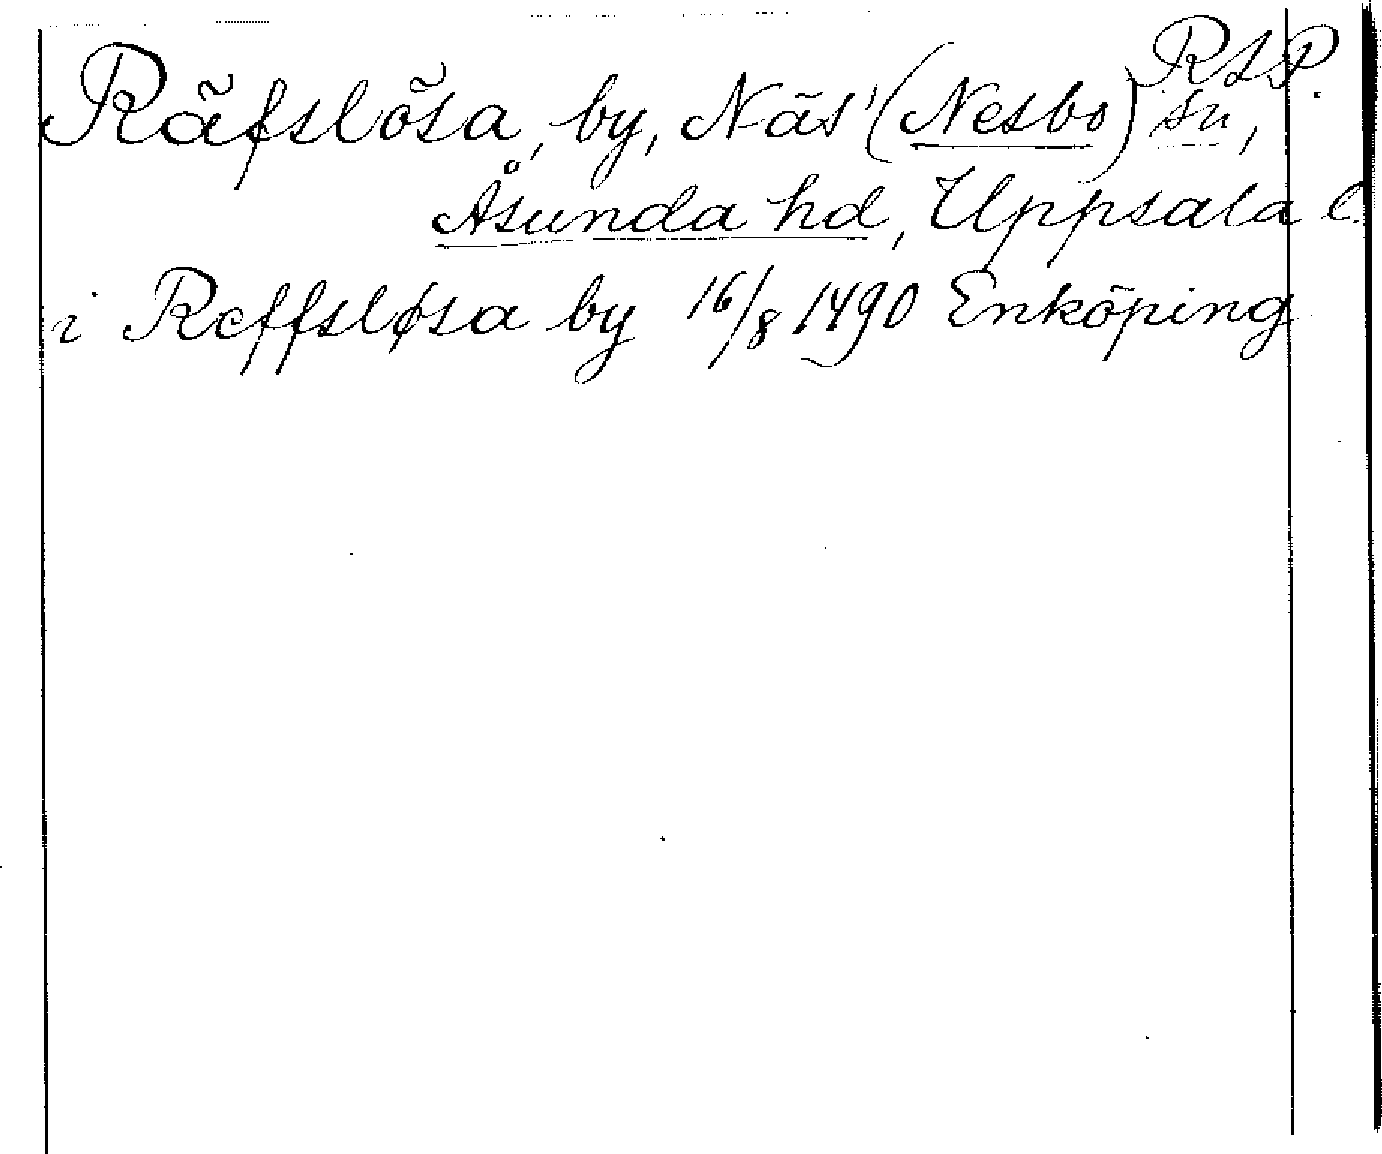 R S P.
Räfslösa, by, Näs (Nesbo) sn,
Åsunda hd, Uppsala l.
i Reffsløsa by 16/8 1490 Enköping